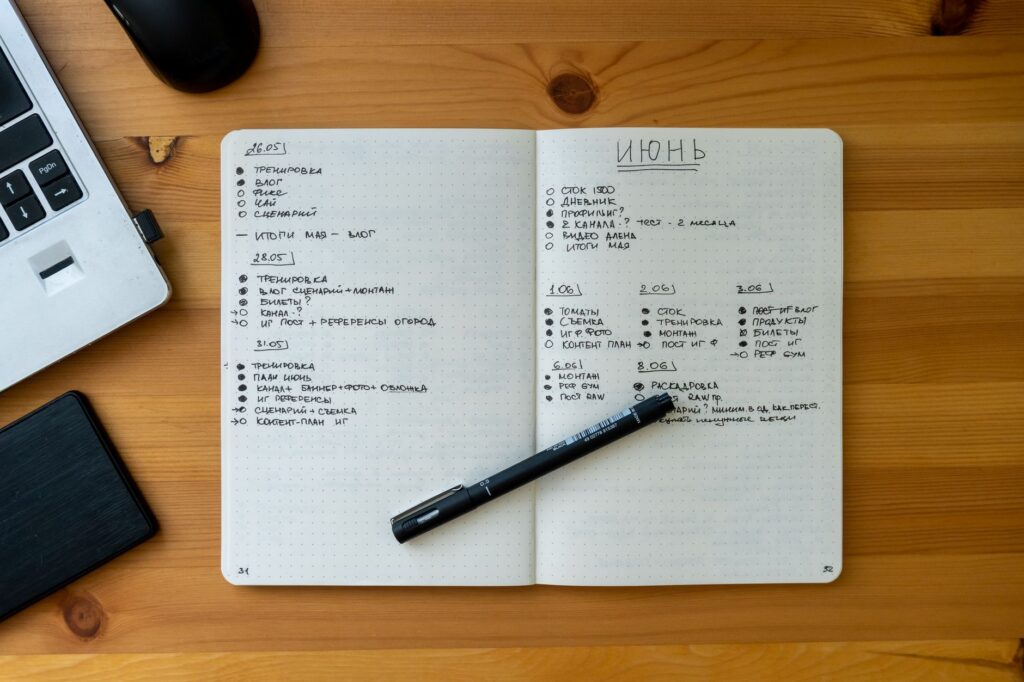 PgDn
26.05
ТРЕНИРОВКА
ВЛОГ
ФИКС
ЧАЙ
СЦЕНАРИЙ
— ИТОГИ МАЯ — ВЛОГ
28.05
ТРЕНИРОВКА
ВЛОГ СЦЕНАРИЙ + МОНТАЖ
БИЛЕТЫ?
→ КАНАЛ - ?
→ ИГ ПОСТ + РЕФЕРЕНСЫ ОГОРОД
31.05
ТРЕНИРОВКА
ПЛАН ИЮНЬ
КАНАЛ + БАННЕР + ФОТО + ОБЛОЖКА
ИГ РЕФЕРЕНСЫ
→ СЦЕНАРИЙ + СЪЕМКА
→ КОНТЕНТ-ПЛАН ИГ
31
ИЮНЬ
СТОК 1500
ДНЕВНИК
ПРОФИЛЬ ИГ?
2 КАНАЛА - ? ТЕСТ - 2 МЕСЯЦА
ВИДЕО АЛЕНА
ИТОГИ МАЯ
1.06
ТОМАТЫ
СЪЕМКА
ИГ Ф. ФОТО
КОНТЕНТ ПЛАН
2.06
СТОК
ТРЕНИРОВКА
МОНТАЖ
→ ПОСТ ИГ Ф
3.06
ПОСТ ИГ ВЛОГ
ПРОДУКТЫ
БИЛЕТЫ
ПОСТ ИГ
→ РЕФ GYM
6.06
МОНТАЖ
РЕФ GYM
ПОСТ RAW
8.06
РАСКАДРОВКА
RAW ПР.
? МИНИМ. В ОД. КАК ПЕРЕСТ.
ненужные вещи
32